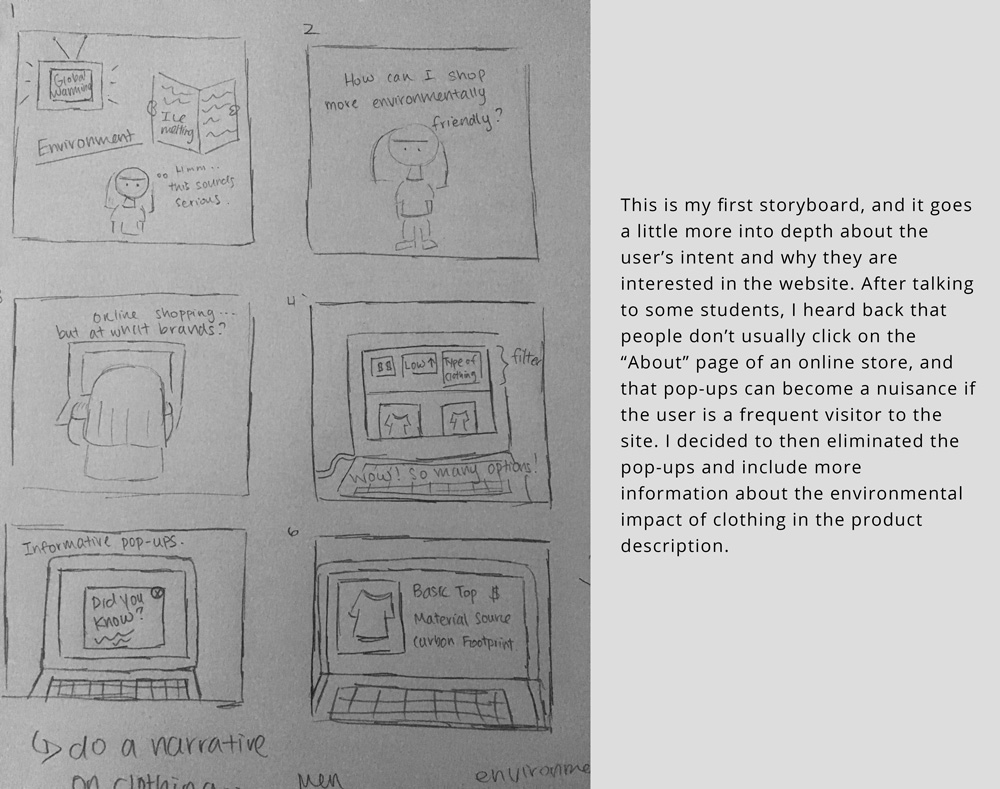 1
Global
Warming
Ice
melting
Environment
Hmm..
this sounds
serious.
2
How can I shop
more environmentally
friendly?
online shopping...
but at what brands?
4
$$
Low ↑
Type of
Clothing
filter
Wow! so many options!
Informative pop-ups.
Did you
know?
6
Basic Top $
Material Source
Carbon Footprint
↳ do a narrative
on clothing
Men
environme
This is my first storyboard, and it goes
a little more into depth about the
user’s intent and why they are
interested in the website. After talking
to some students, I heard back that
people don’t usually click on the
“About” page of an online store, and
that pop-ups can become a nuisance if
the user is a frequent visitor to the
site. I decided to then eliminated the
pop-ups and include more
information about the environmental
impact of clothing in the product
description.